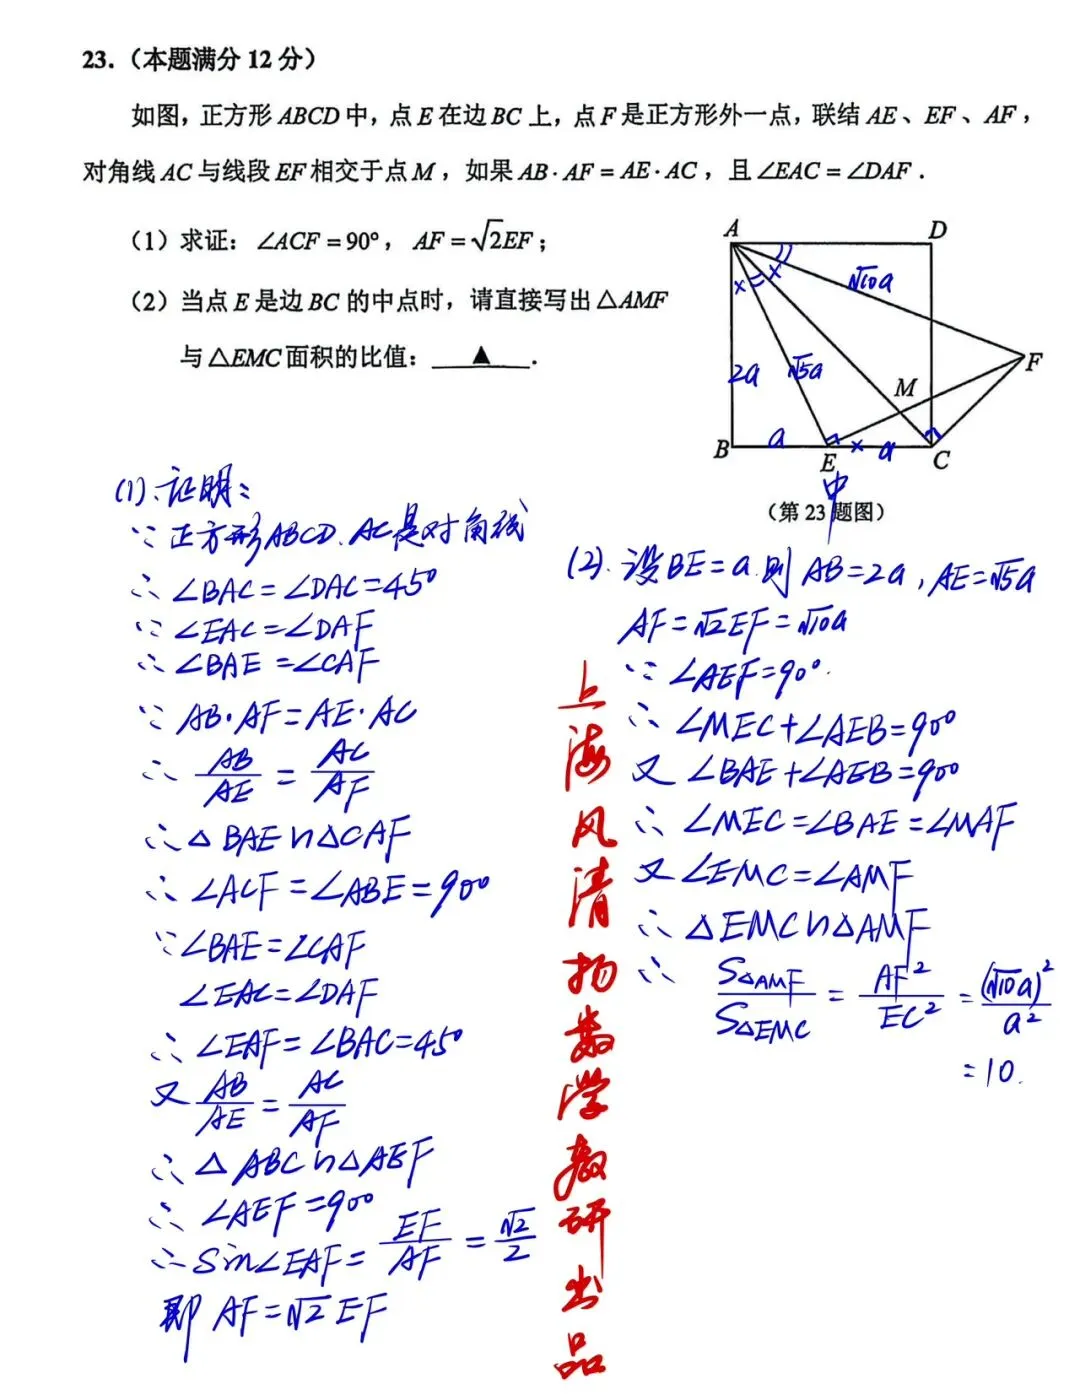 23.（本题满分 12 分）
如图，正方形 ABCD 中，点 E 在边 BC 上，点 F 是正方形外一点，联结 AE、EF、AF，
对角线 AC 与线段 EF 相交于点 M，如果 AB·AF = AE·AC，且 ∠EAC = ∠DAF．
（1）求证：∠ACF = 90°，AF = √2EF；
（2）当点 E 是边 BC 的中点时，请直接写出 △AMF
与 △EMC 面积的比值：▲．
A
D
√10a
×
×
2a
√5a
M
F
B
a
E
×
a
C
中
（第 23 题图）
(1).证明：
∵正方形ABCD.AC是对角线
∴∠BAC=∠DAC=45°
∵∠EAC=∠DAF
∴∠BAE=∠CAF
∵AB·AF=AE·AC
∴AB/AE=AC/AF
∴△BAE∽△CAF
∴∠ACF=∠ABE=90°
∵∠BAE=∠CAF
∠EAC=∠DAF
∴∠EAF=∠BAC=45°
又AB/AE=AC/AF
∴△ABC∽△AEF
∴∠AEF=90°
∴Sin∠EAF=EF/AF=√2/2
即 AF=√2EF
(2).设BE=a.则AB=2a,AE=√5a
AF=√2EF=√10a
∵∠AEF=90°.
∴∠MEC+∠AEB=90°
又∠BAE+∠AEB=90°
∴∠MEC=∠BAE=∠MAF
又∠EMC=∠AMF
∴△EMC∽△AMF
∴S△AMF/S△EMC=AF²/EC²=(√10a)²/a²
=10.
上海风清扬数学教研出品